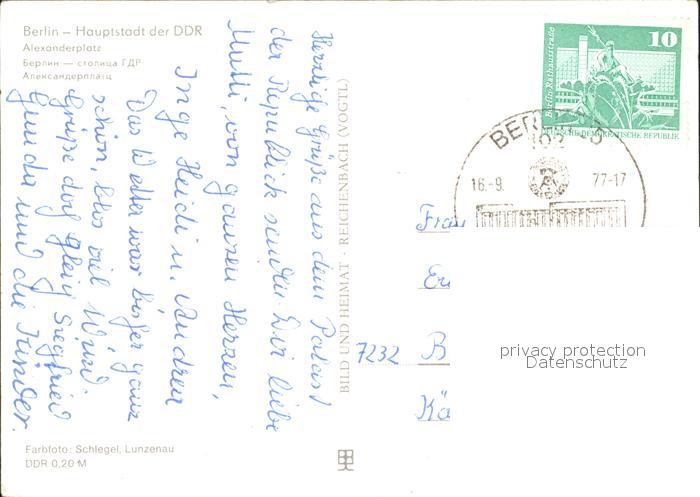 Berlin – Hauptstadt der DDR
Alexanderplatz
Берлин — столица ГДР
Александерплац
Herzliche Grüße aus dem Palast
der Republik senden Dir liebe
Mutti, von ganzen Herzen,
Inge Heidi u. Andrea
Das Wetter war bisher ganz
schön, bloß viel Wind
Grüße doch gleich Siegfried
Gunda und die Kinder.
BILD UND HEIMAT · REICHENBACH (VOGTL)
10
Berlin, Rathausstraße
DEUTSCHE DEMOKRATISCHE REPUBLIK
BERLIN
102
16.-9. 77-17
Frau
7232 B
Kä
privacy protection
Datenschutz
Farbfoto: Schlegel, Lunzenau
DDR 0,20 M